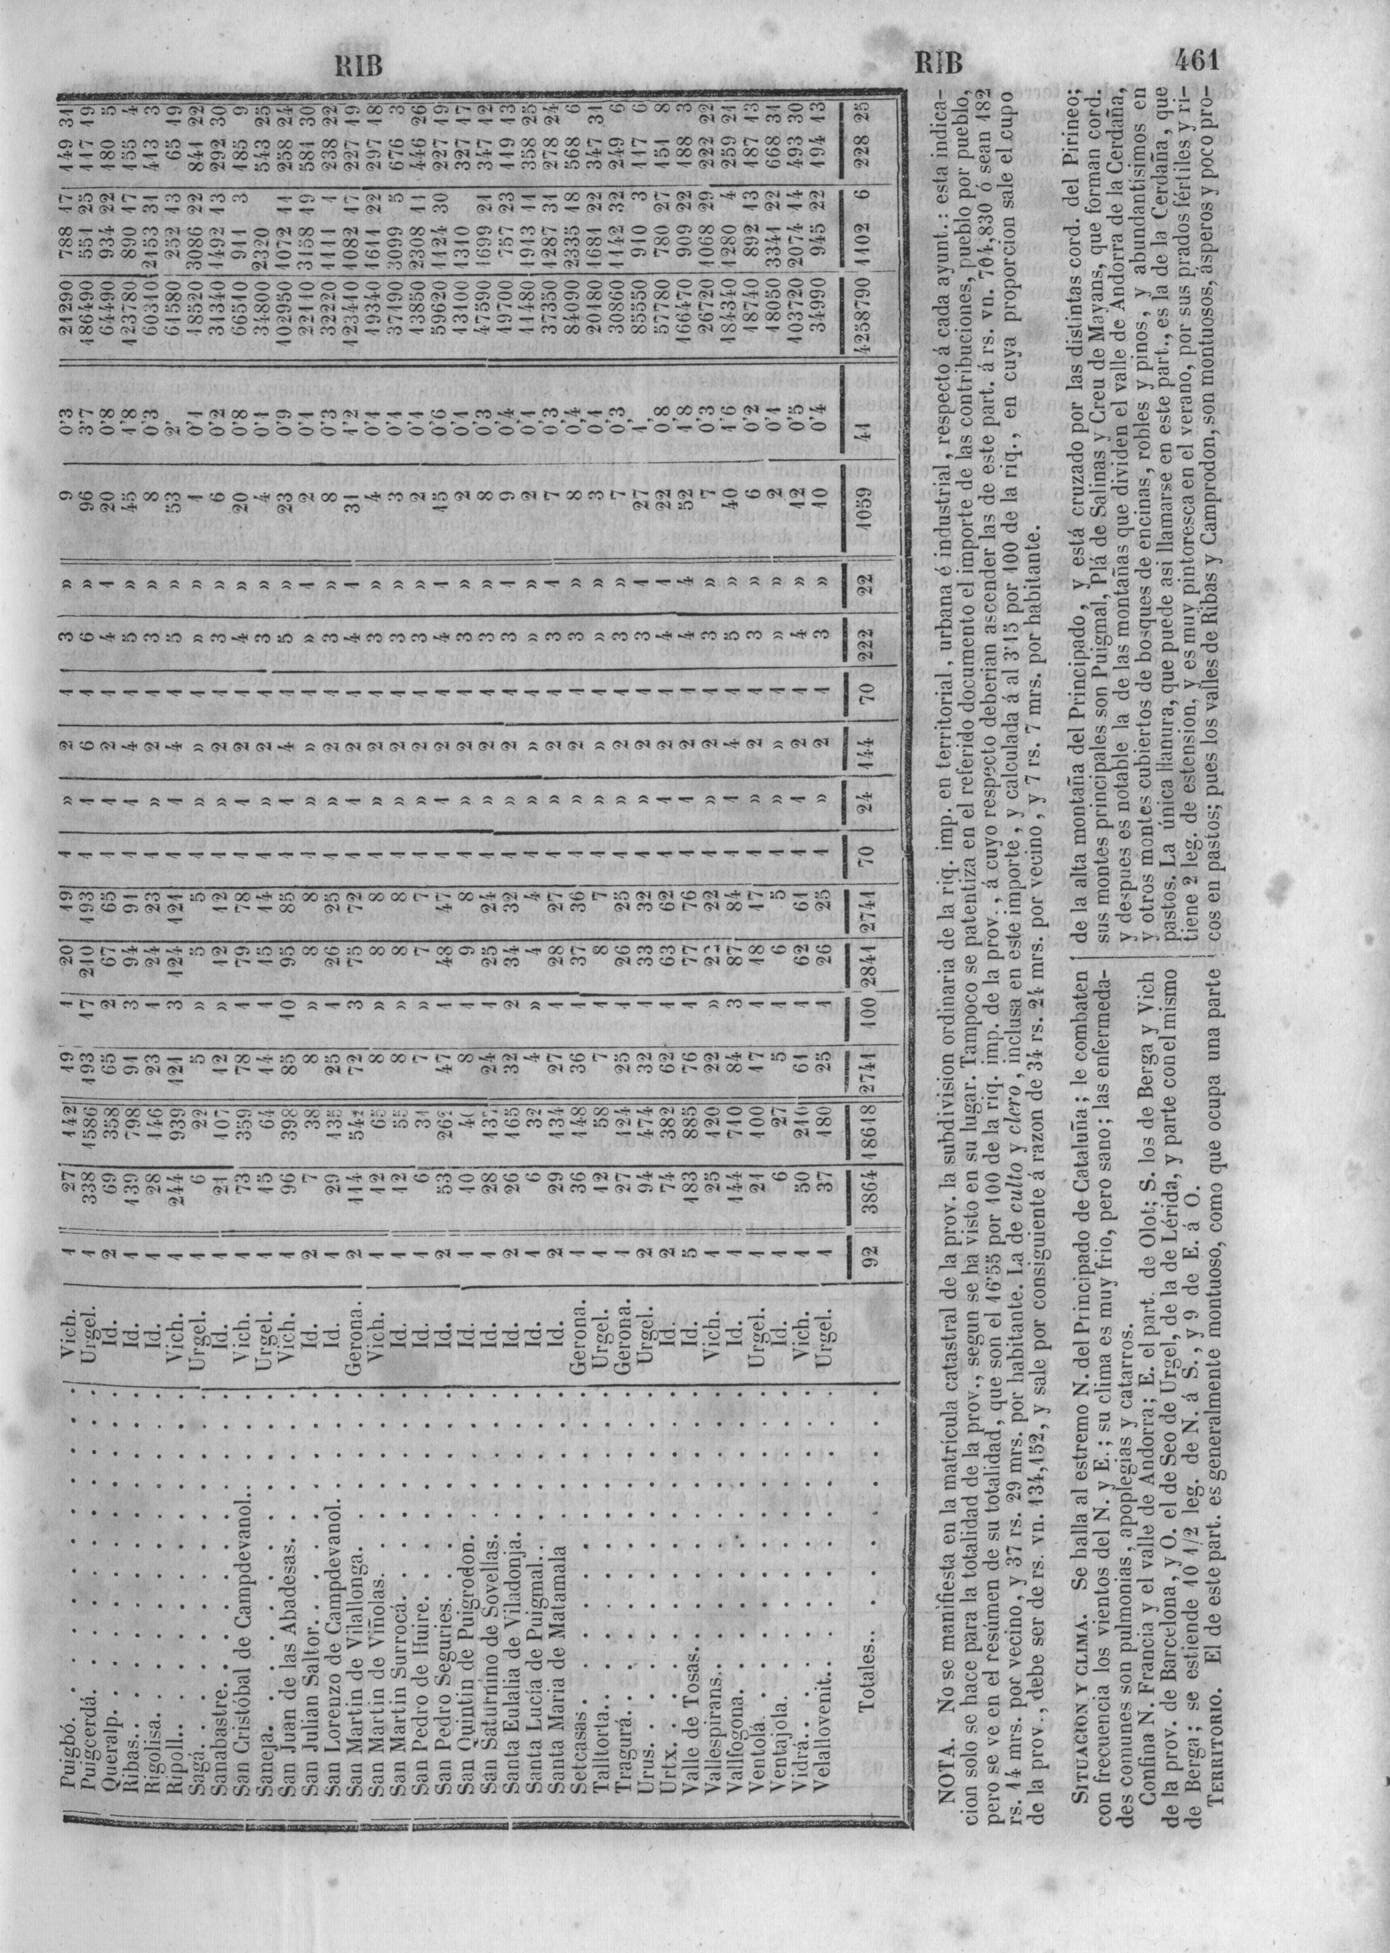 RIB
RIB 461
Puigbó. Vich. 1 27 142 19 1 20 19 1 » 2 1 3 » 9 0'3 21290 788 17 149 31
Puigcerdá. Urgel. 1 338 1586 193 17 210 193 1 1 6 1 6 » 96 3'7 186490 551 25 117 19
Queralp. Id. 2 69 358 65 2 67 65 1 1 2 1 4 1 20 0'8 64490 934 22 180 5
Ribas. Id. 1 139 798 91 3 94 91 1 1 4 1 5 » 45 1'8 123780 890 17 155 4
Rigolisa. Id. 1 28 146 23 1 24 23 1 » 2 1 3 » 8 0'3 60310 2153 31 413 3
Ripoll. Vich. 1 244 939 121 3 124 121 1 1 4 1 5 » 53 2' 61580 252 13 65 19
Sagá. Urgel. 1 6 22 5 » 5 5 1 » » 1 » » 1 0'1 18520 3086 22 841 22
Sanabastre. Id. 1 21 107 12 » 12 12 1 » 2 1 3 » 6 0'2 31340 1492 13 292 30
San Cristóbal de Campdevanol. Vich. 1 73 359 78 1 79 78 1 » 2 1 4 » 20 0'8 66510 911 3 185 9
Saneja. Urgel. 1 15 64 14 1 15 14 1 » 2 1 3 » 4 0'1 34800 2320 543 25
San Juan de las Abadesas. Vich. 1 96 398 85 10 95 85 1 1 4 1 5 » 23 0'9 102950 1072 14 258 24
San Julian Saltor. Id. 2 7 38 8 » 8 8 1 » » 1 » 1 2 0'1 22110 3158 19 581 30
San Lorenzo de Campdevanol. Id. 1 29 135 25 1 26 25 1 » 2 1 3 » 8 0'3 32220 1111 1 238 22
San Martin de Vilallonga. Gerona. 2 114 542 72 3 75 72 1 1 2 1 4 1 31 1'2 123440 1082 17 227 19
San Martin de Viñolas. Vich. 1 12 65 8 » 8 8 1 » 2 1 3 » 4 0'1 19340 1611 22 297 18
San Martin Surrocá. Id. 1 12 55 8 » 8 8 1 » 2 1 3 » 3 0'1 37190 3099 5 676 3
San Pedro de Huire. Id. 1 6 31 7 » 7 7 1 » 2 1 3 » 2 0'1 13850 2308 11 446 26
San Pedro Seguries. Id. 2 53 262 47 1 48 47 1 1 2 1 4 1 15 0'6 59620 1124 30 227 19
San Quintin de Puigrodon. Id. 1 10 40 8 1 9 8 1 » 2 1 3 » 2 0'1 13100 1310 327 17
San Saturnino de Sovellas. Id. 1 28 137 24 1 25 24 1 » 2 1 3 » 8 0'3 47590 1699 21 347 12
Santa Eulalia de Viladonja. Id. 2 26 165 32 2 34 32 1 » 2 1 3 1 9 0'4 19700 757 23 119 13
Santa Lucía de Puigmal. Id. 1 6 32 4 » 4 4 1 » » 1 » » 2 0'1 11480 1913 11 358 25
Santa Maria de Matamala Id. 2 29 134 27 1 28 27 1 » 2 1 3 1 7 0'3 37350 1287 31 278 24
Setcasas Gerona. 1 36 148 36 1 37 36 1 » 2 1 3 » 8 0'4 84090 2335 18 568 6
Talltorta. Urgel. 1 12 58 7 1 8 7 1 » » 1 » » 3 0'1 20180 1681 22 347 31
Tragurá. Gerona. 1 27 124 25 1 26 25 1 » 2 1 3 » 7 0'3 30860 1142 32 249 6
Urus. Urgel. 2 94 474 32 1 33 32 1 » 2 1 3 1 27 1' 85550 910 3 117 6
Urtx. Id. 2 74 382 62 1 63 62 1 1 2 1 4 1 22 0'8 57780 780 27 151 8
Valle de Tosas. Id. 5 183 885 76 1 77 76 1 1 2 1 4 4 52 1'8 166470 909 22 188 3
Vallespirans. Vich. 1 25 120 22 » 22 22 1 » 2 1 3 » 7 0'3 26720 1068 29 222 22
Vallfogona. Id. 1 144 710 84 3 87 84 1 1 4 1 5 » 40 1'6 184340 1280 4 259 21
Ventolá. Urgel. 1 21 100 17 1 18 17 1 » 2 1 3 » 6 0'2 18740 892 13 187 13
Ventajola. Id. 1 6 27 5 1 6 5 1 » » 1 » » 2 0'1 18050 3341 22 668 31
Vidrá. Vich. 1 50 210 61 1 62 61 1 1 2 1 4 » 12 0'5 103720 2074 14 493 30
Velallovenit. Urgel. 1 37 180 25 1 26 25 1 » 2 1 3 » 10 0'4 34990 945 22 194 13
Totales.. 92 3864 18618 2741 100 2841 2741 70 24 144 70 222 22 1059 41 4258790 1102 6 228 25
NOTA. No se manifiesta en la matricula catastral de la prov. la subdivision ordinaria de la riq. imp. en territorial, urbana é industrial, respecto á cada ayunt.: esta indica-
cion solo se hace para la totalidad de la prov., segun se ha visto en su lugar. Tampoco se patentiza en el referido documento el importe de las contribuciones, pueblo por pueblo,
pero se ve en el resúmen de su totalidad, que son el 16'55 por 100 de la riq. imp. de la prov., á cuyo respecto deberian ascender las de este part. á rs. vn. 704,830 ó sean 182
rs. 14 mrs. por vecino, y 37 rs. 29 mrs. por habitante. La de culto y clero, inclusa en este importe, y calculada á al 3'15 por 100 de la riq., en cuya proporcion sale el cupo
de la prov., debe ser de rs. vn. 134,152, y sale por consiguiente á razon de 34 rs. 24 mrs. por vecino, y 7 rs. 7 mrs. por habitante.
SITUACION Y CLIMA. Se halla al estremo N. del Principado de Cataluña; le combaten
con frecuencia los vientos del N. y E.; su clima es muy frio, pero sano; las enfermeda-
des comunes son pulmonias, apoplegias y catarros.
Confina N. Francia y el valle de Andorra; E. el part. de Olot; S. los de Berga y Vich
de la prov. de Barcelona, y O. el de Seo de Urgel, de la de Lérida, y parte con el mismo
de Berga; se estiende 10 1/2 leg. de N. á S., y 9 de E. á O.
TERRITORIO. El de este part. es generalmente montuoso, como que ocupa una parte
de la alta montaña del Principado, y está cruzado por las distintas cord. del Pirineo;
sus montes principales son Puigmal, Plá de Salinas y Creu de Mayans, que forman cord.
y despues es notable la de las montañas que dividen el valle de Andorra de la Cerdaña,
y otros montes cubiertos de bosques de encinas, robles y pinos, y abundantísimos en
pastos. La única llanura, que puede asi llamarse en este part., es la de la Cerdaña, que
tiene 2 leg. de estension, y es muy pintoresca en el verano, por sus prados fértiles y ri-
cos en pastos; pues los valles de Ribas y Camprodon, son montuosos, ásperos y poco pro-